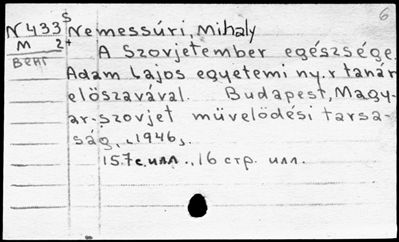 6
N 433 S Nemessúri, Mihaly
M 2+ A Szovjetember egészsége.
Венг Adam Lajos egyetemi ny. r tanár
előszavával. Budapest, Magy-
ar-szovjet müvelödési tarsa-
ság, 1946.
157с. илл., 16 стр. илл.